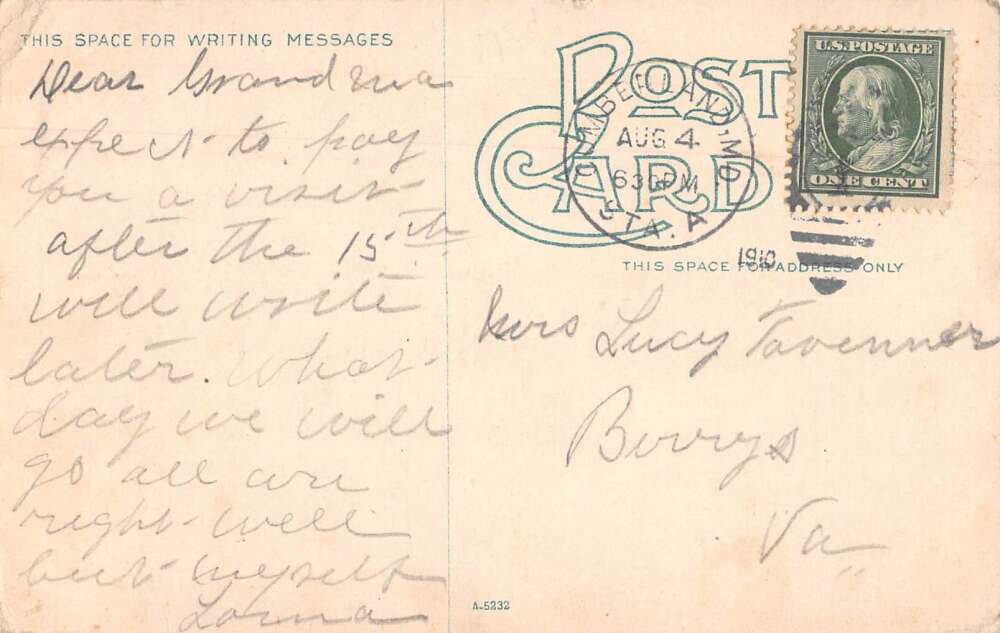 THIS SPACE FOR WRITING MESSAGES
Dear Grandma
expect to pay
you a visit
after the 15th
will write
later what
day we will
go all are
right well
but myself
Lorna
POST
CARD
CUMBERLAND, MD.
AUG 4
630PM
STA. A
1910
U.S. POSTAGE
ONE CENT
THIS SPACE FOR ADDRESS ONLY
Mrs Lucy Tavenner
Berrys
Va
A-5232